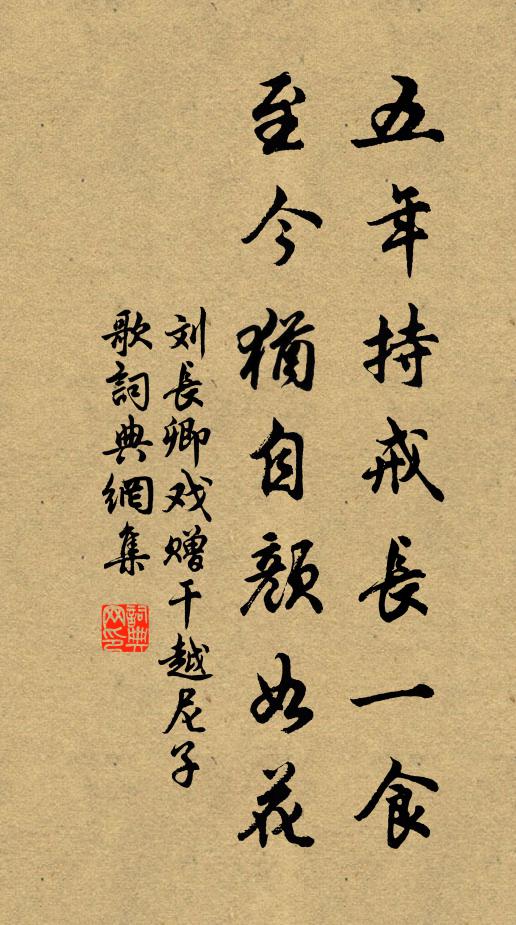 五年持戒長一食
至今猶自顔如花
刘長卿戏贈干越尼子
歌詞典網集
詞典网印